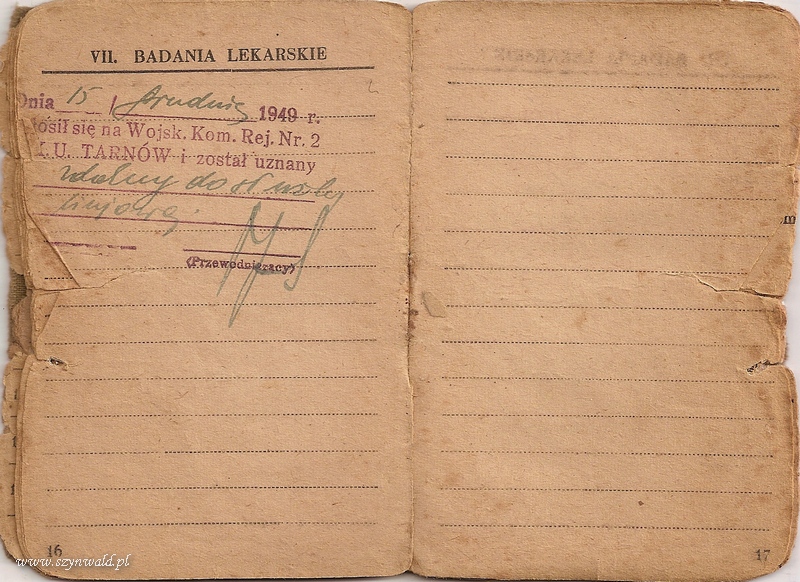 VII. BADANIA LEKARSKIE
Dnia 15 / grudnia 1949 r.
osił się na Wojsk. Kom. Rej. Nr. 2
K.U. TARNÓW i został uznany
zdolny do służby
liniowej.
(Przewodniczący)
16
17
www.szynwald.pl